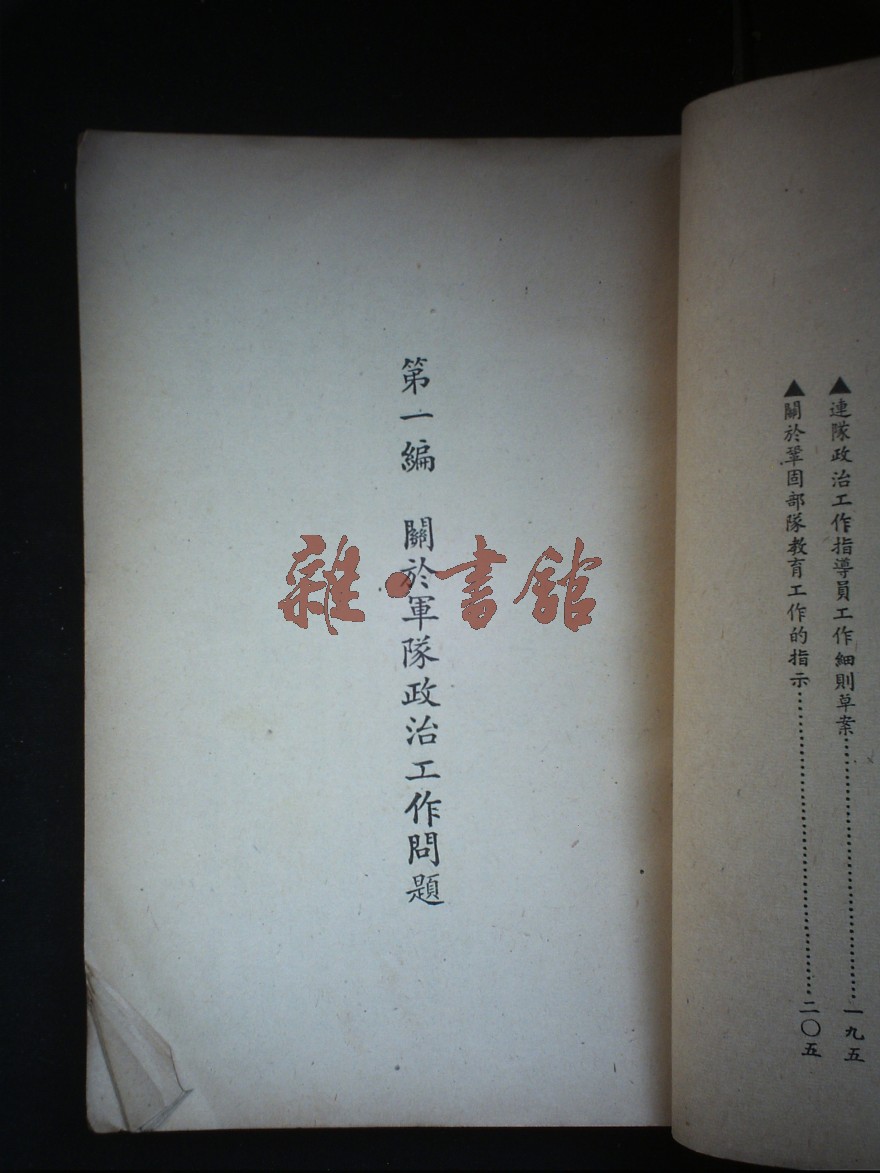 ▲連隊政治工作指導員工作細則草案……………………一九五
▲關於鞏固部隊教育工作的指示……………………二〇五
第一編 關於軍隊政治工作問題
雜·書館